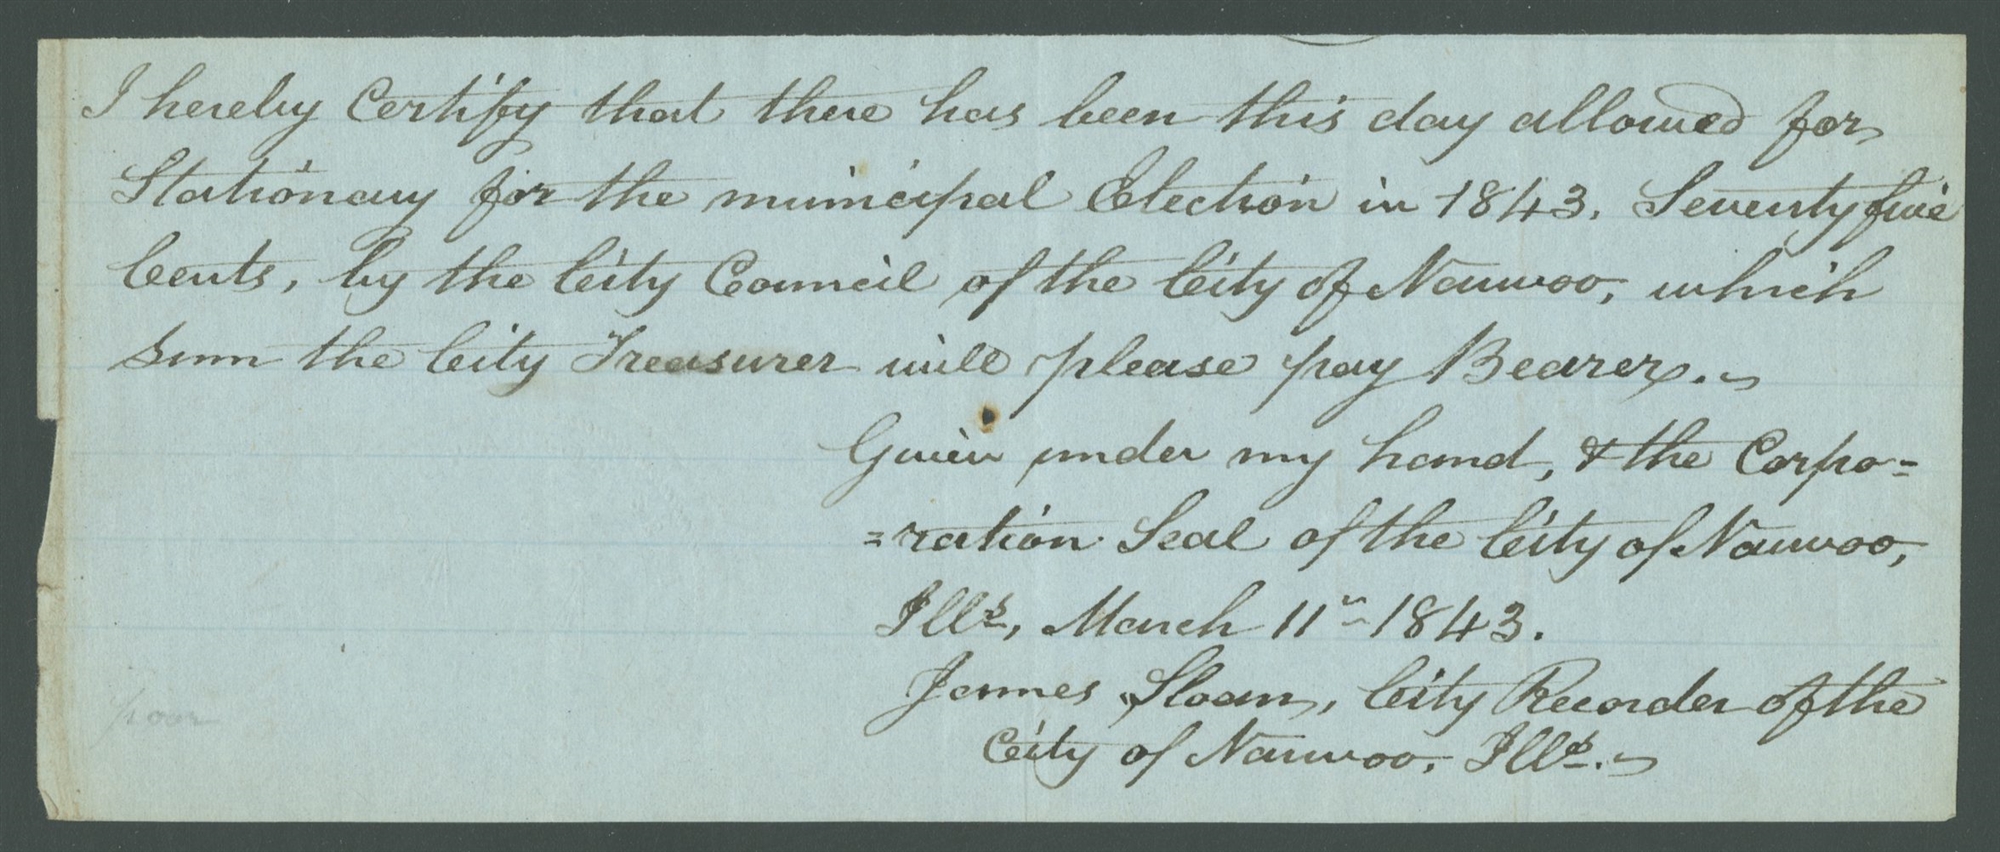 I hereby Certify that there has been this day allowed for
Stationary for the municipal Election in 1843. Seventy five
Cents, by the City Council of the City of Nauvoo, which
sum the City Treasurer will please pay Bearer.
Given under my hand, & the Corpo=
=ration Seal of the City of Nauvoo,
Ills, March 11" 1843.
James Sloan, City Recorder of the
City of Nauvoo, Ills.
poor